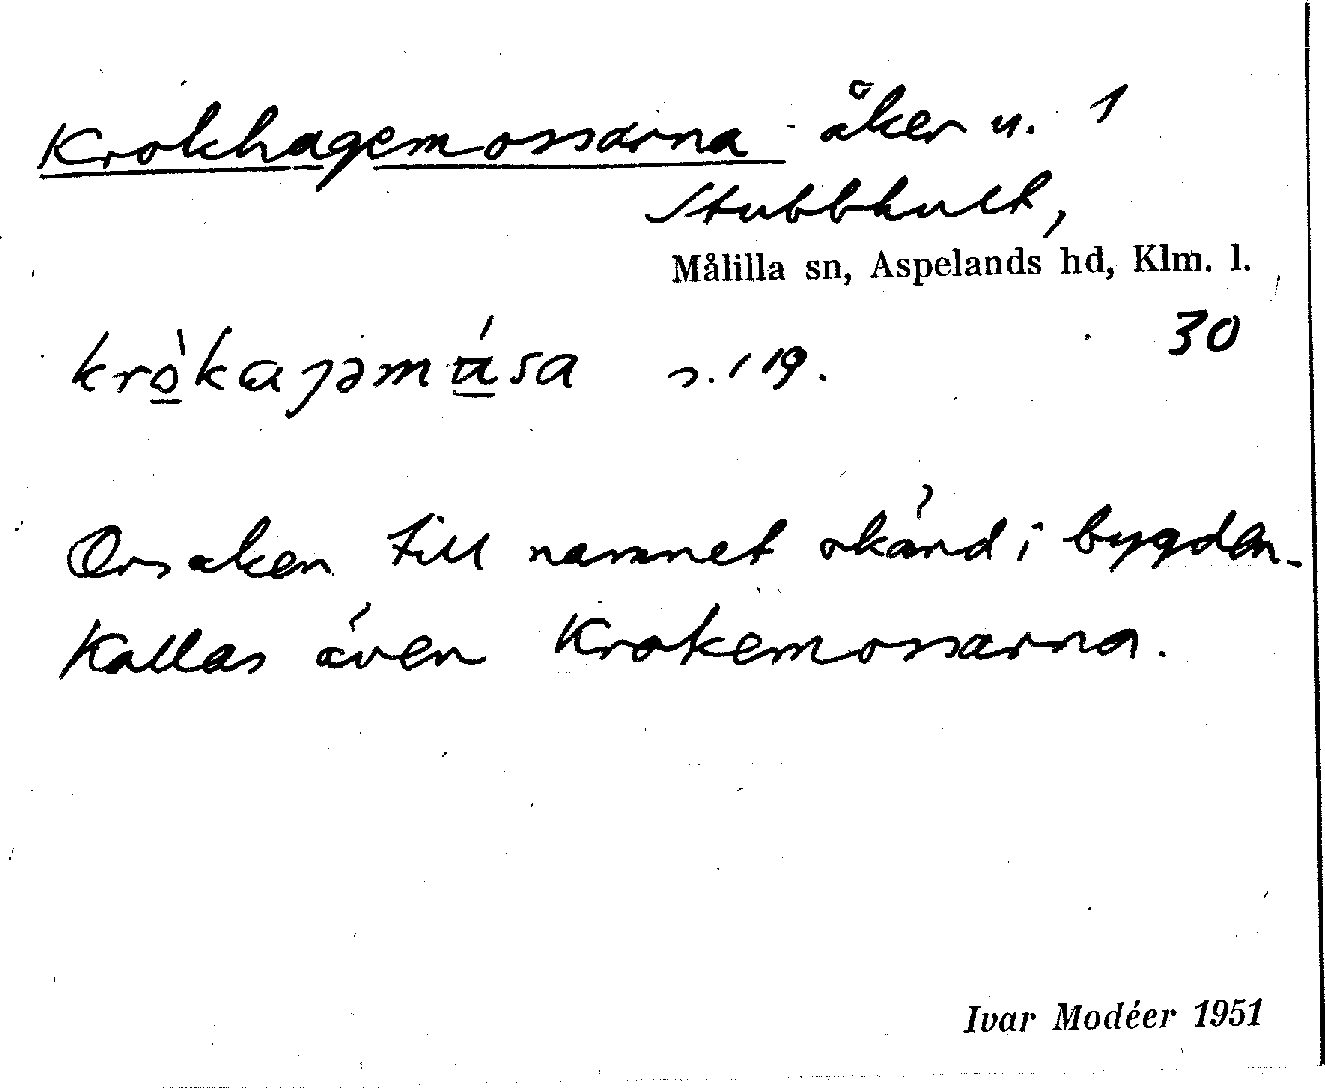 Krokhagemossarna åker u. 1
Stubbhult,
Målilla sn, Aspelands hd, Klm. l.
30
Orsaken till namnet okänd i bygden.
Kallas även Krokemossarna.
Ivar Modéer 1951